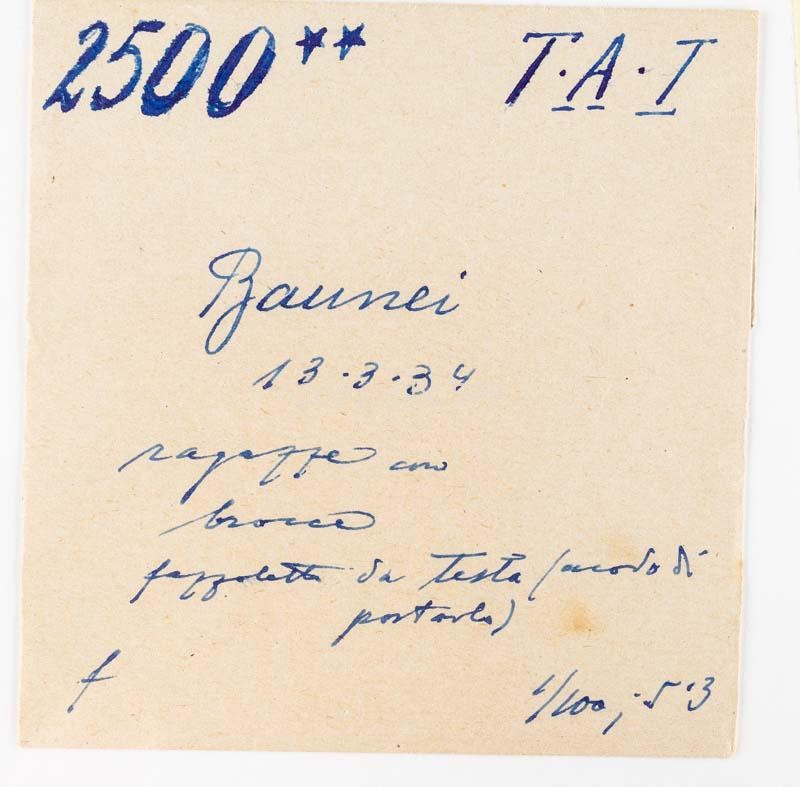 2500** T.A.T
Baunei
13.3.34
ragazze con
brocce
fazzoletto da testa (modo di
portarlo)
f 1/100; 5'3